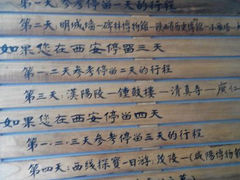 第一天参考停留一天的行程
第二天：明城墙—碑林博物館—陕西历史博物馆—小
如果您在西安停留三天
第一、二天参考停留二天的行程
第三天：漢陽陵—鍾鼓楼—清真寺—
如果您在西安停留四天
第一、二、三天参考停留三天的行程
第四天：西线探宝一日游：茂陵—(咸陽博物